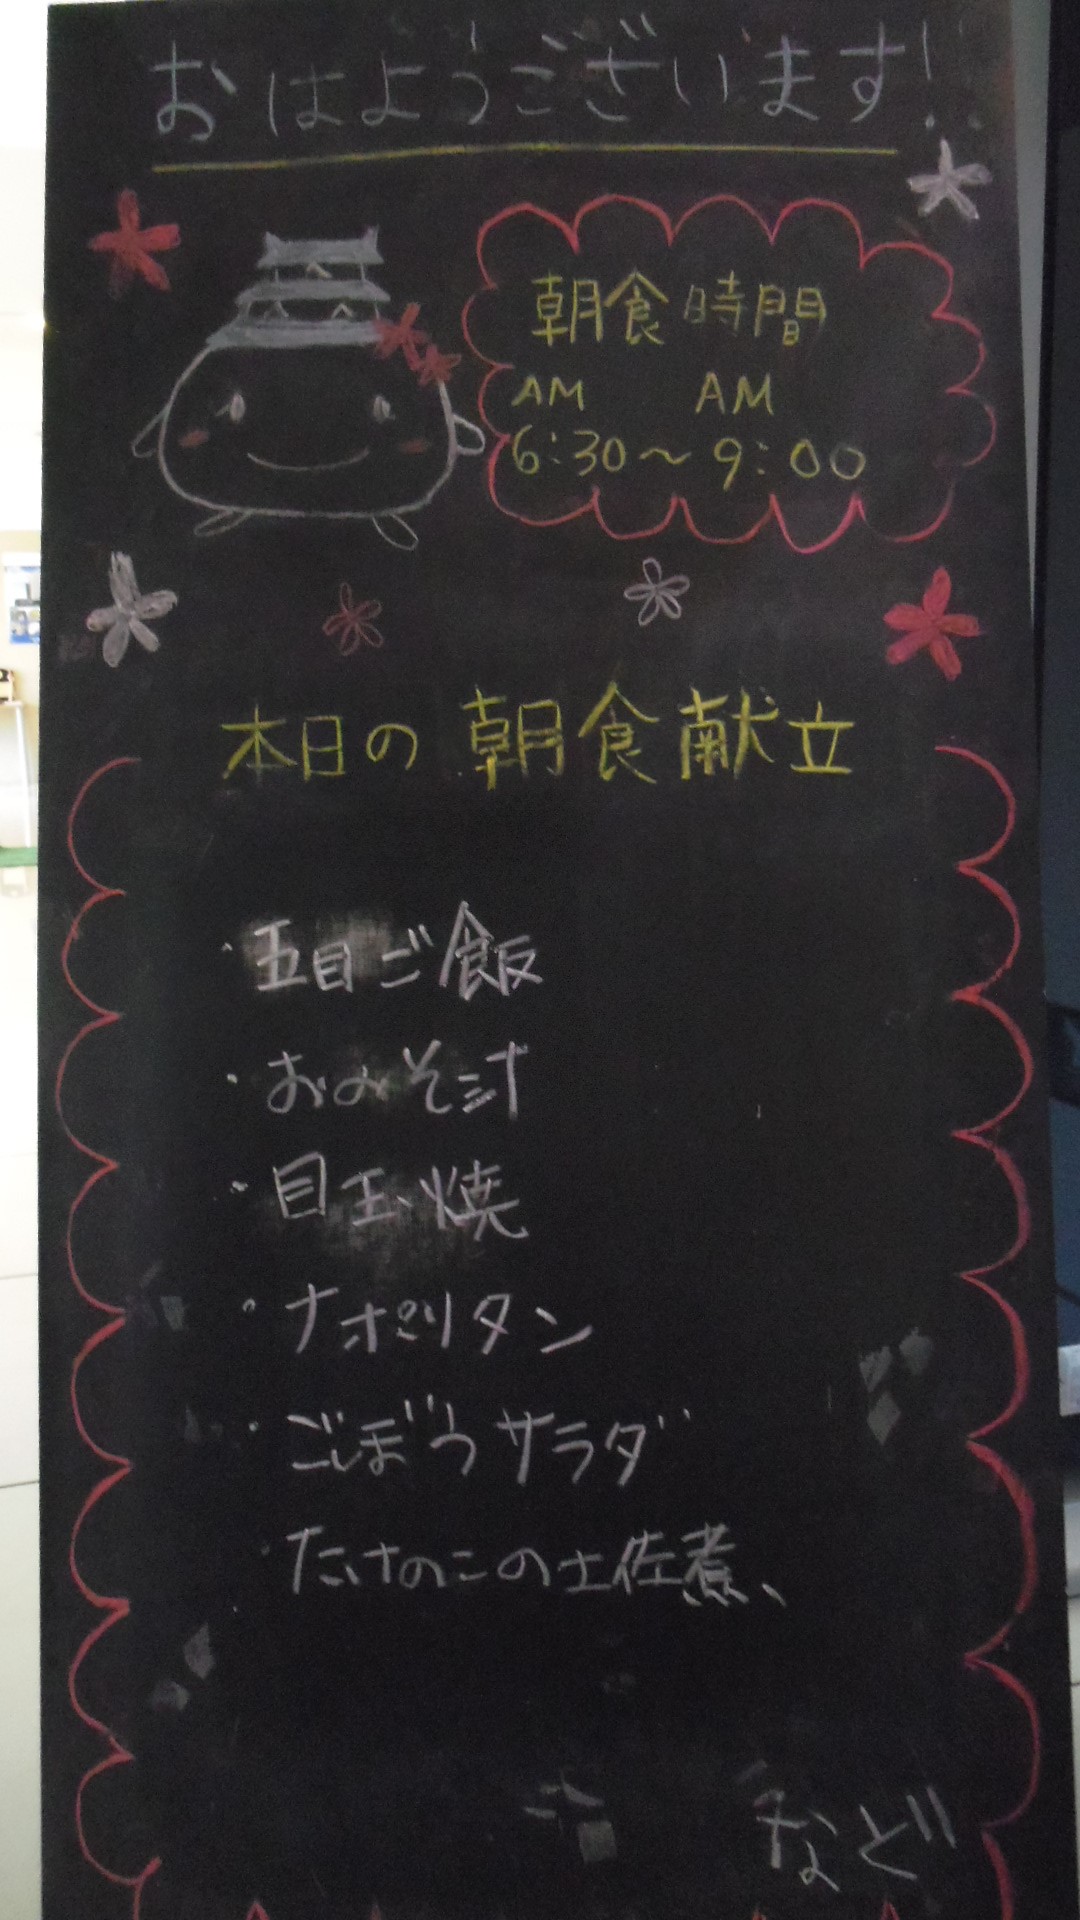 おはようございます!!
朝食時間
AM AM
6:30～9:00
本日の朝食献立
・五目ご飯
・おみそ汁
・目玉焼
・ナポリタン
・ごぼうサラダ
・たけのこの土佐煮、
など